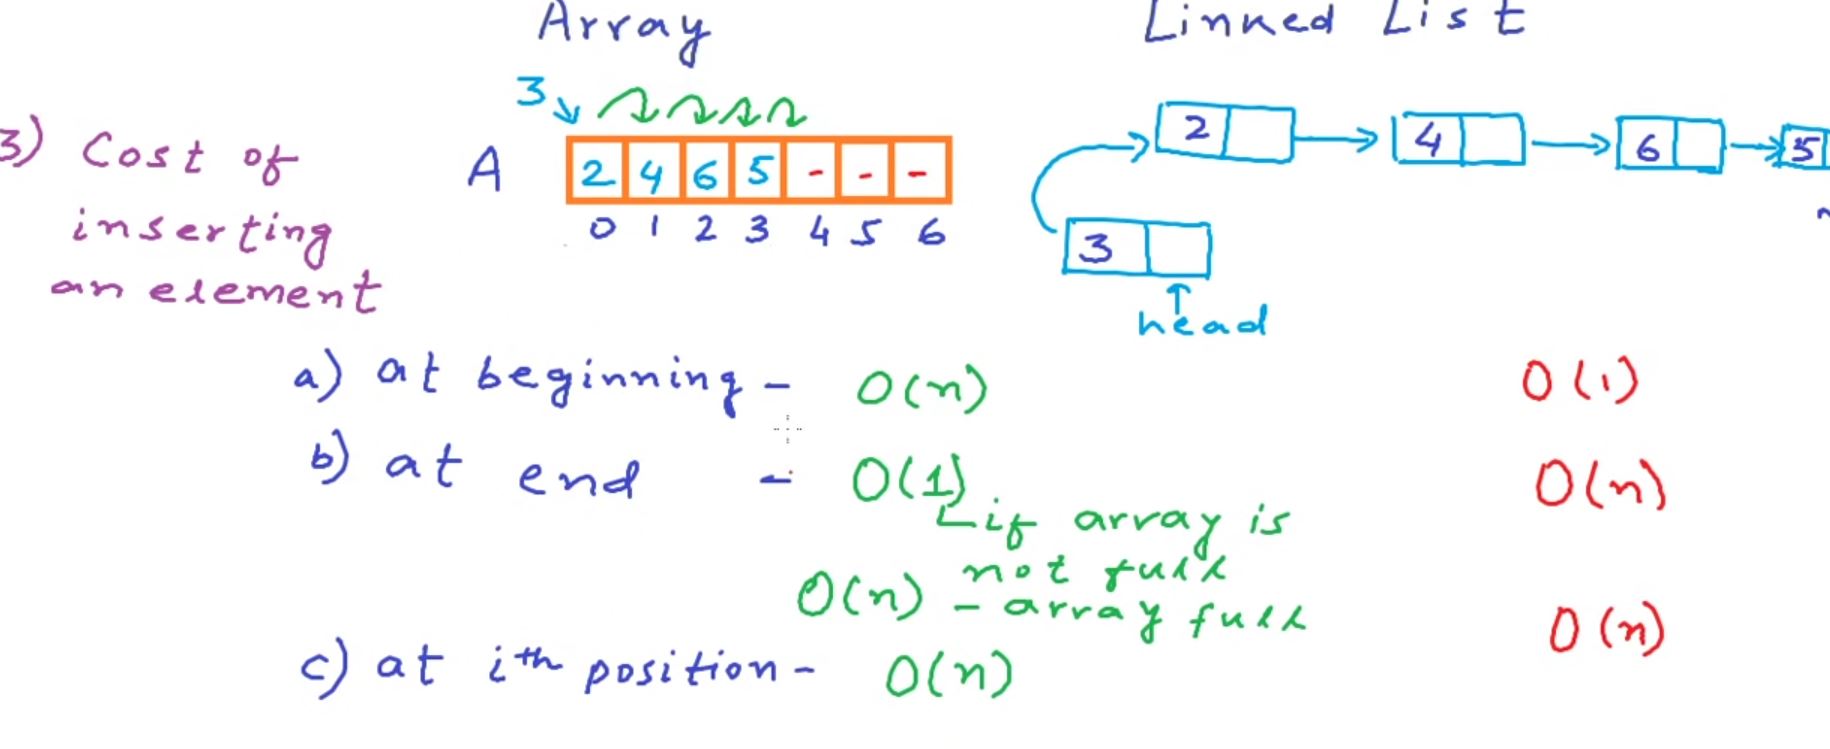 Array Linked List
3
3) Cost of
inserting
an element
A 2 4 6 5 - - -
0 1 2 3 4 5 6
2 4 6 5
3
head
a) at beginning - O(n) O(1)
b) at end - O(1) O(n)
if array is
not full
O(n) - array full
c) at ith position - O(n) O(n)